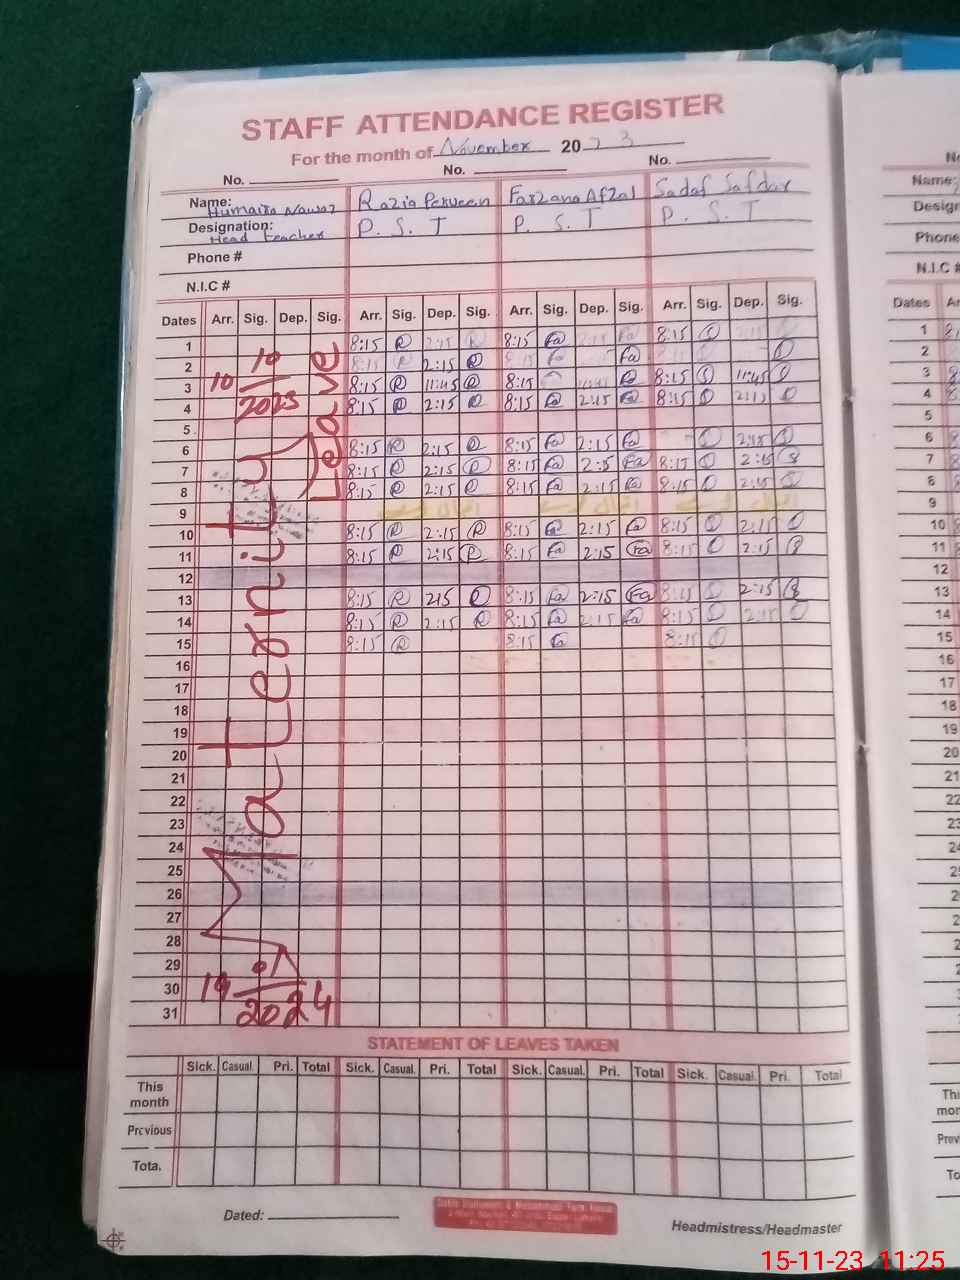 STAFF ATTENDANCE REGISTER
For the month of November 2023
No. No. No.
Name: Humaira Nawaz Razia Perveen Farzana Afzal Sadaf Safdar
Designation: Head teacher P.S.T P.S.T P.S.T
Phone #
N.I.C #
Dates Arr. Sig. Dep. Sig. Arr. Sig. Dep. Sig. Arr. Sig. Dep. Sig. Arr. Sig. Dep. Sig.
1 8:15 R 2:15 R 8:15 Fa 2:15 Fa 8:15 S 2:15
2 8:15 R 2:15 R 8:15 Fa Fa
3 8:15 R 11:45 R 8:15 11:45 8:15 S 11:45 S
4 8:15 R 2:15 R 8:15 Fa 2:15 Fa 8:15 S 2:15 S
5
6 8:15 R 2:15 R 8:15 Fa 2:15 Fa S 2:15 S
7 8:15 R 2:15 R 8:15 Fa 2:15 Fa 8:15 S 2:15 S
8 8:15 R 2:15 R 8:15 Fa 2:15 Fa 8:15 S 2:15 S
9
10 8:15 R 2:15 R 8:15 Fa 2:15 Fa 8:15 S 2:15 S
11 8:15 R 2:15 R 8:15 Fa 2:15 Fa 8:15 S 2:15 S
12
13 8:15 R 215 R 8:15 Fa 2:15 Fa 8:15 S 2:15 S
14 8:15 R 2:15 R 8:15 Fa 2:15 Fa 8:15 S 2:15 S
15 8:15 R 8:15 Fa 8:15 S
16
17
18
19
20
21
22
23
24
25
26
27
28
29
30
31
10 10/2023
Maternity Leave
19 01/2024
STATEMENT OF LEAVES TAKEN
Sick. Casual. Pri. Total Sick. Casual. Pri. Total Sick. Casual. Pri. Total Sick. Casual. Pri. Total
This month
Previous
Tota.
Dated:
Headmistress/Headmaster
No
Name:
Design
Phone
N.I.C #
Dates Ar
1
2
3
4
5
6
7
8
9
10
11
12
13
14
15
16
17
18
19
20
21
22
23
Thi
mor
Prev
To
15-11-23 11:25